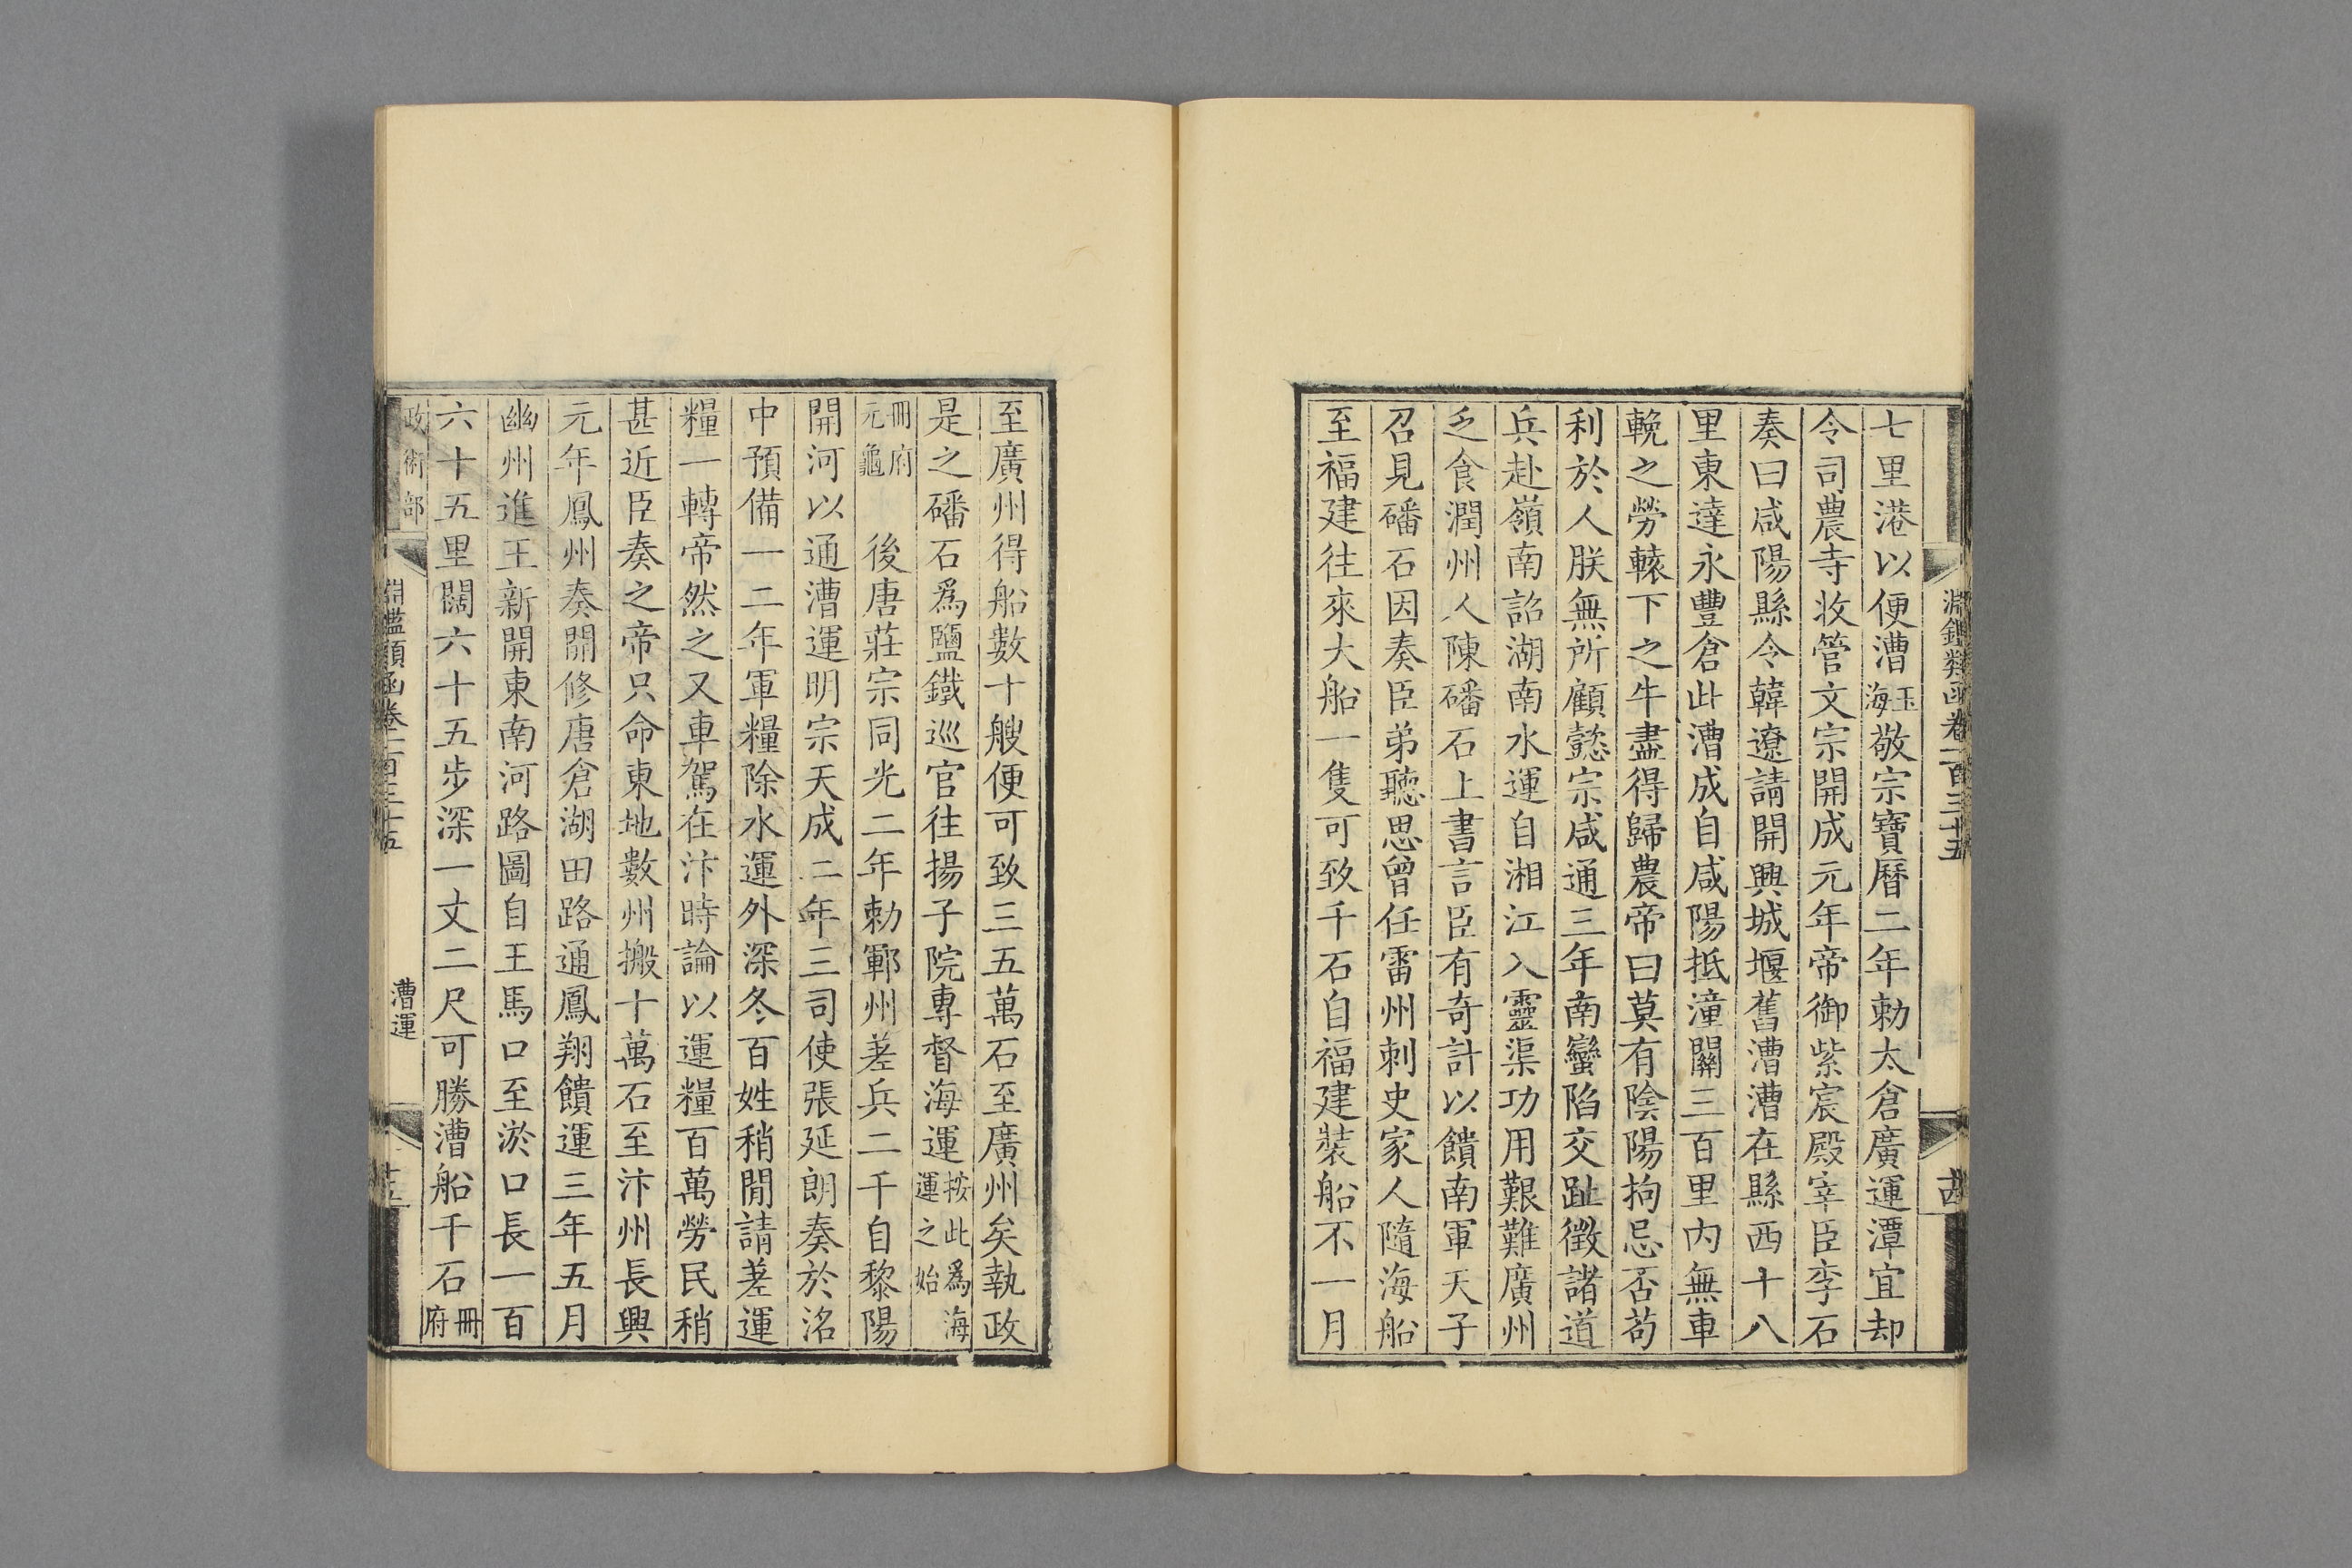 淵鑑類函卷一百三十五
十四
七里港以便漕玉海敬宗寶曆二年勅太倉廣運潭宜却
令司農寺收管文宗開成元年帝御紫宸殿宰臣李石
奏曰咸陽縣令韓遼請開興城堰舊漕漕在縣西十八
里東達永豐倉此漕成自咸陽抵潼關三百里內無車
輓之勞轅下之牛盡得歸農帝曰莫有陰陽拘忌否苟
利於人朕無所顧懿宗咸通三年南蠻陷交趾徵諸道
兵赴嶺南詔湖南水運自湘江入靈渠功用艱難廣州
乏食潤州人陳磻石上書言臣有奇計以饋南軍天子
召見磻石因奏臣弟聽思曾任雷州刺史家人隨海船
至福建往來大船一隻可致千石自福建裝船不一月
至廣州得船數十艘便可致三五萬石至廣州矣執政
是之磻石爲鹽鐵巡官往揚子院專督海運按此爲海運之始
冊府元龜 後唐莊宗同光二年勅鄆州差兵二千自黎陽
開河以通漕運明宗天成二年三司使張延朗奏於洺
中預備一二年軍糧除水運外深冬百姓稍閒請差運
糧一轉帝然之又車駕在汴時論以運糧百萬勞民稍
甚近臣奏之帝只命東地數州搬十萬石至汴州長興
元年鳳州奏開修唐倉湖田路通鳳翔饋運三年五月
幽州進王新開東南河路圖自王馬口至淤口長一百
六十五里闊六十五步深一丈二尺可勝漕船千石冊府
政術部
淵鑑類函卷一百三十五
漕運